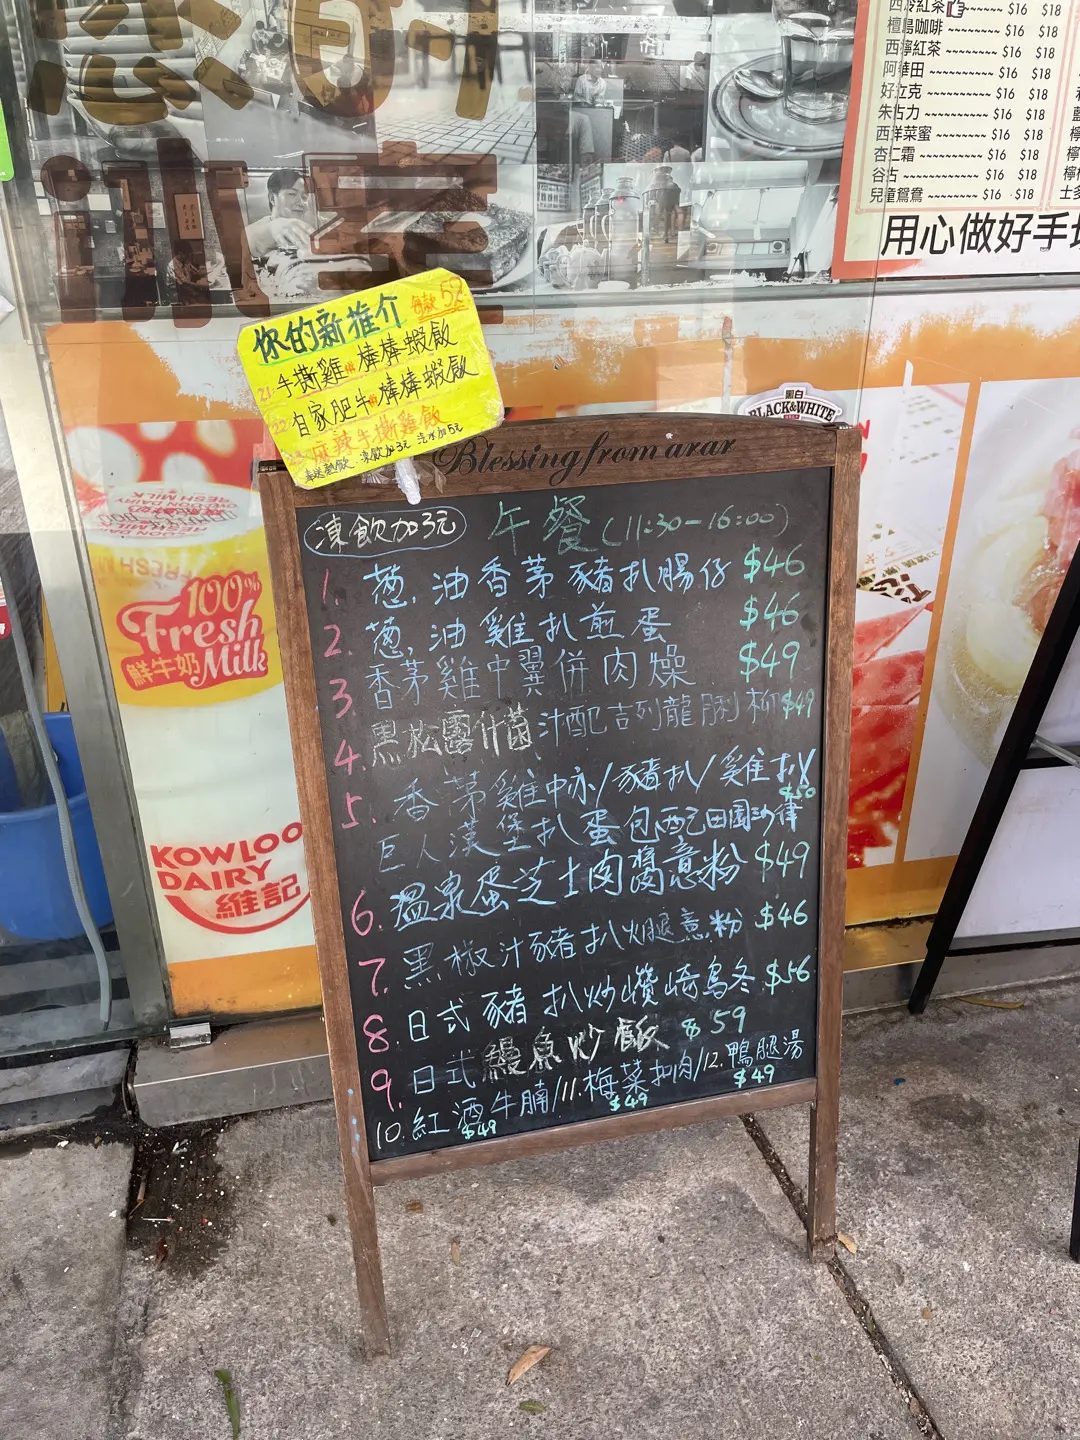 冰室
西冷紅茶 $16 $18
檀島咖啡 $16 $18
西檸紅茶 $16 $18
阿華田 $16 $18
好立克 $16 $18
朱古力 $16 $18
西洋菜蜜 $16 $18
杏仁霜 $16 $18
谷古 $16 $18
兒童鴛鴦 $16 $18
用心做好手
你的新推介 每款52
21.手撕雞拼棒棒蝦飯
22.自家肥牛拼棒棒蝦飯
23.麻辣手撕雞飯
凍飲加3元 汽水加5元
BLACK&WHITE
Blessing from arar
凍飲加3元 午餐(11:30-16:00)
1. 葱油香茅豬扒腸仔 $46
2. 葱油雞扒煎蛋 $46
3. 香茅雞中翼併肉燥 $49
4. 黑松露什菌汁配吉列龍脷柳 $49
5. 香茅雞中亦/豬扒/雞扒
巨人漢堡扒蛋包配田園沙律 $50
6. 溫泉蛋芝士肉醬意粉 $49
7. 黑椒汁豬扒火腿意粉 $46
8. 日式豬扒炒讚崎烏冬 $56
9. 日式鰻魚炒飯 $59
10. 紅酒牛腩/11.梅菜扣肉/12.鴨腿湯
$49 $49 $49
100%
Fresh
鮮牛奶 Milk
KOWLOO
DAIRY
維記